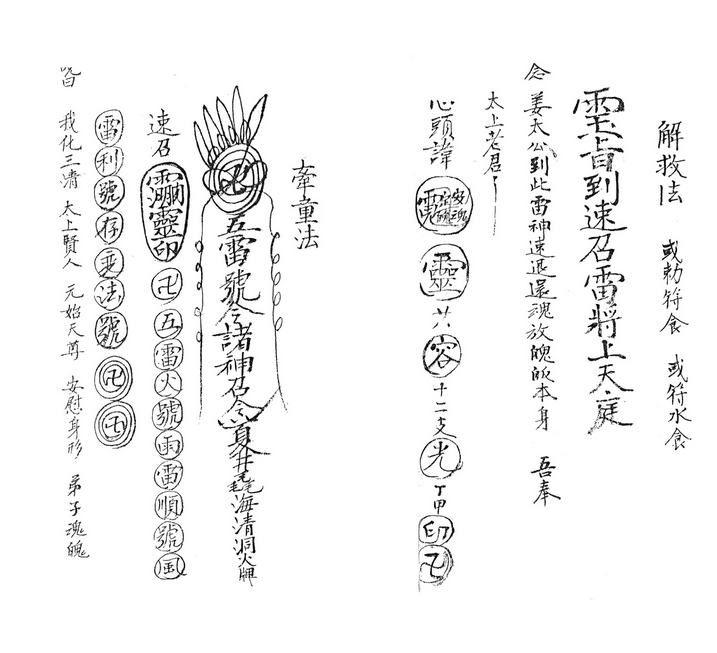 解救法 或勅符食 或符水食
旨到速召雷將上天庭
念 姜太公到此雷神速退還魂放魄皈本身 吾奉
太上老君
心頭諱 安魂 靈 共 容 十二支 光 丁甲 印 卍
牽童法
卍 五雷號令諸神召 海清洞火牌
速召 靈印 卍 五雷火號雨雷順號風
雷利號存 法號 卍
我化三清 太上賢人 元始天尊 安慰身形 弟子魂魄